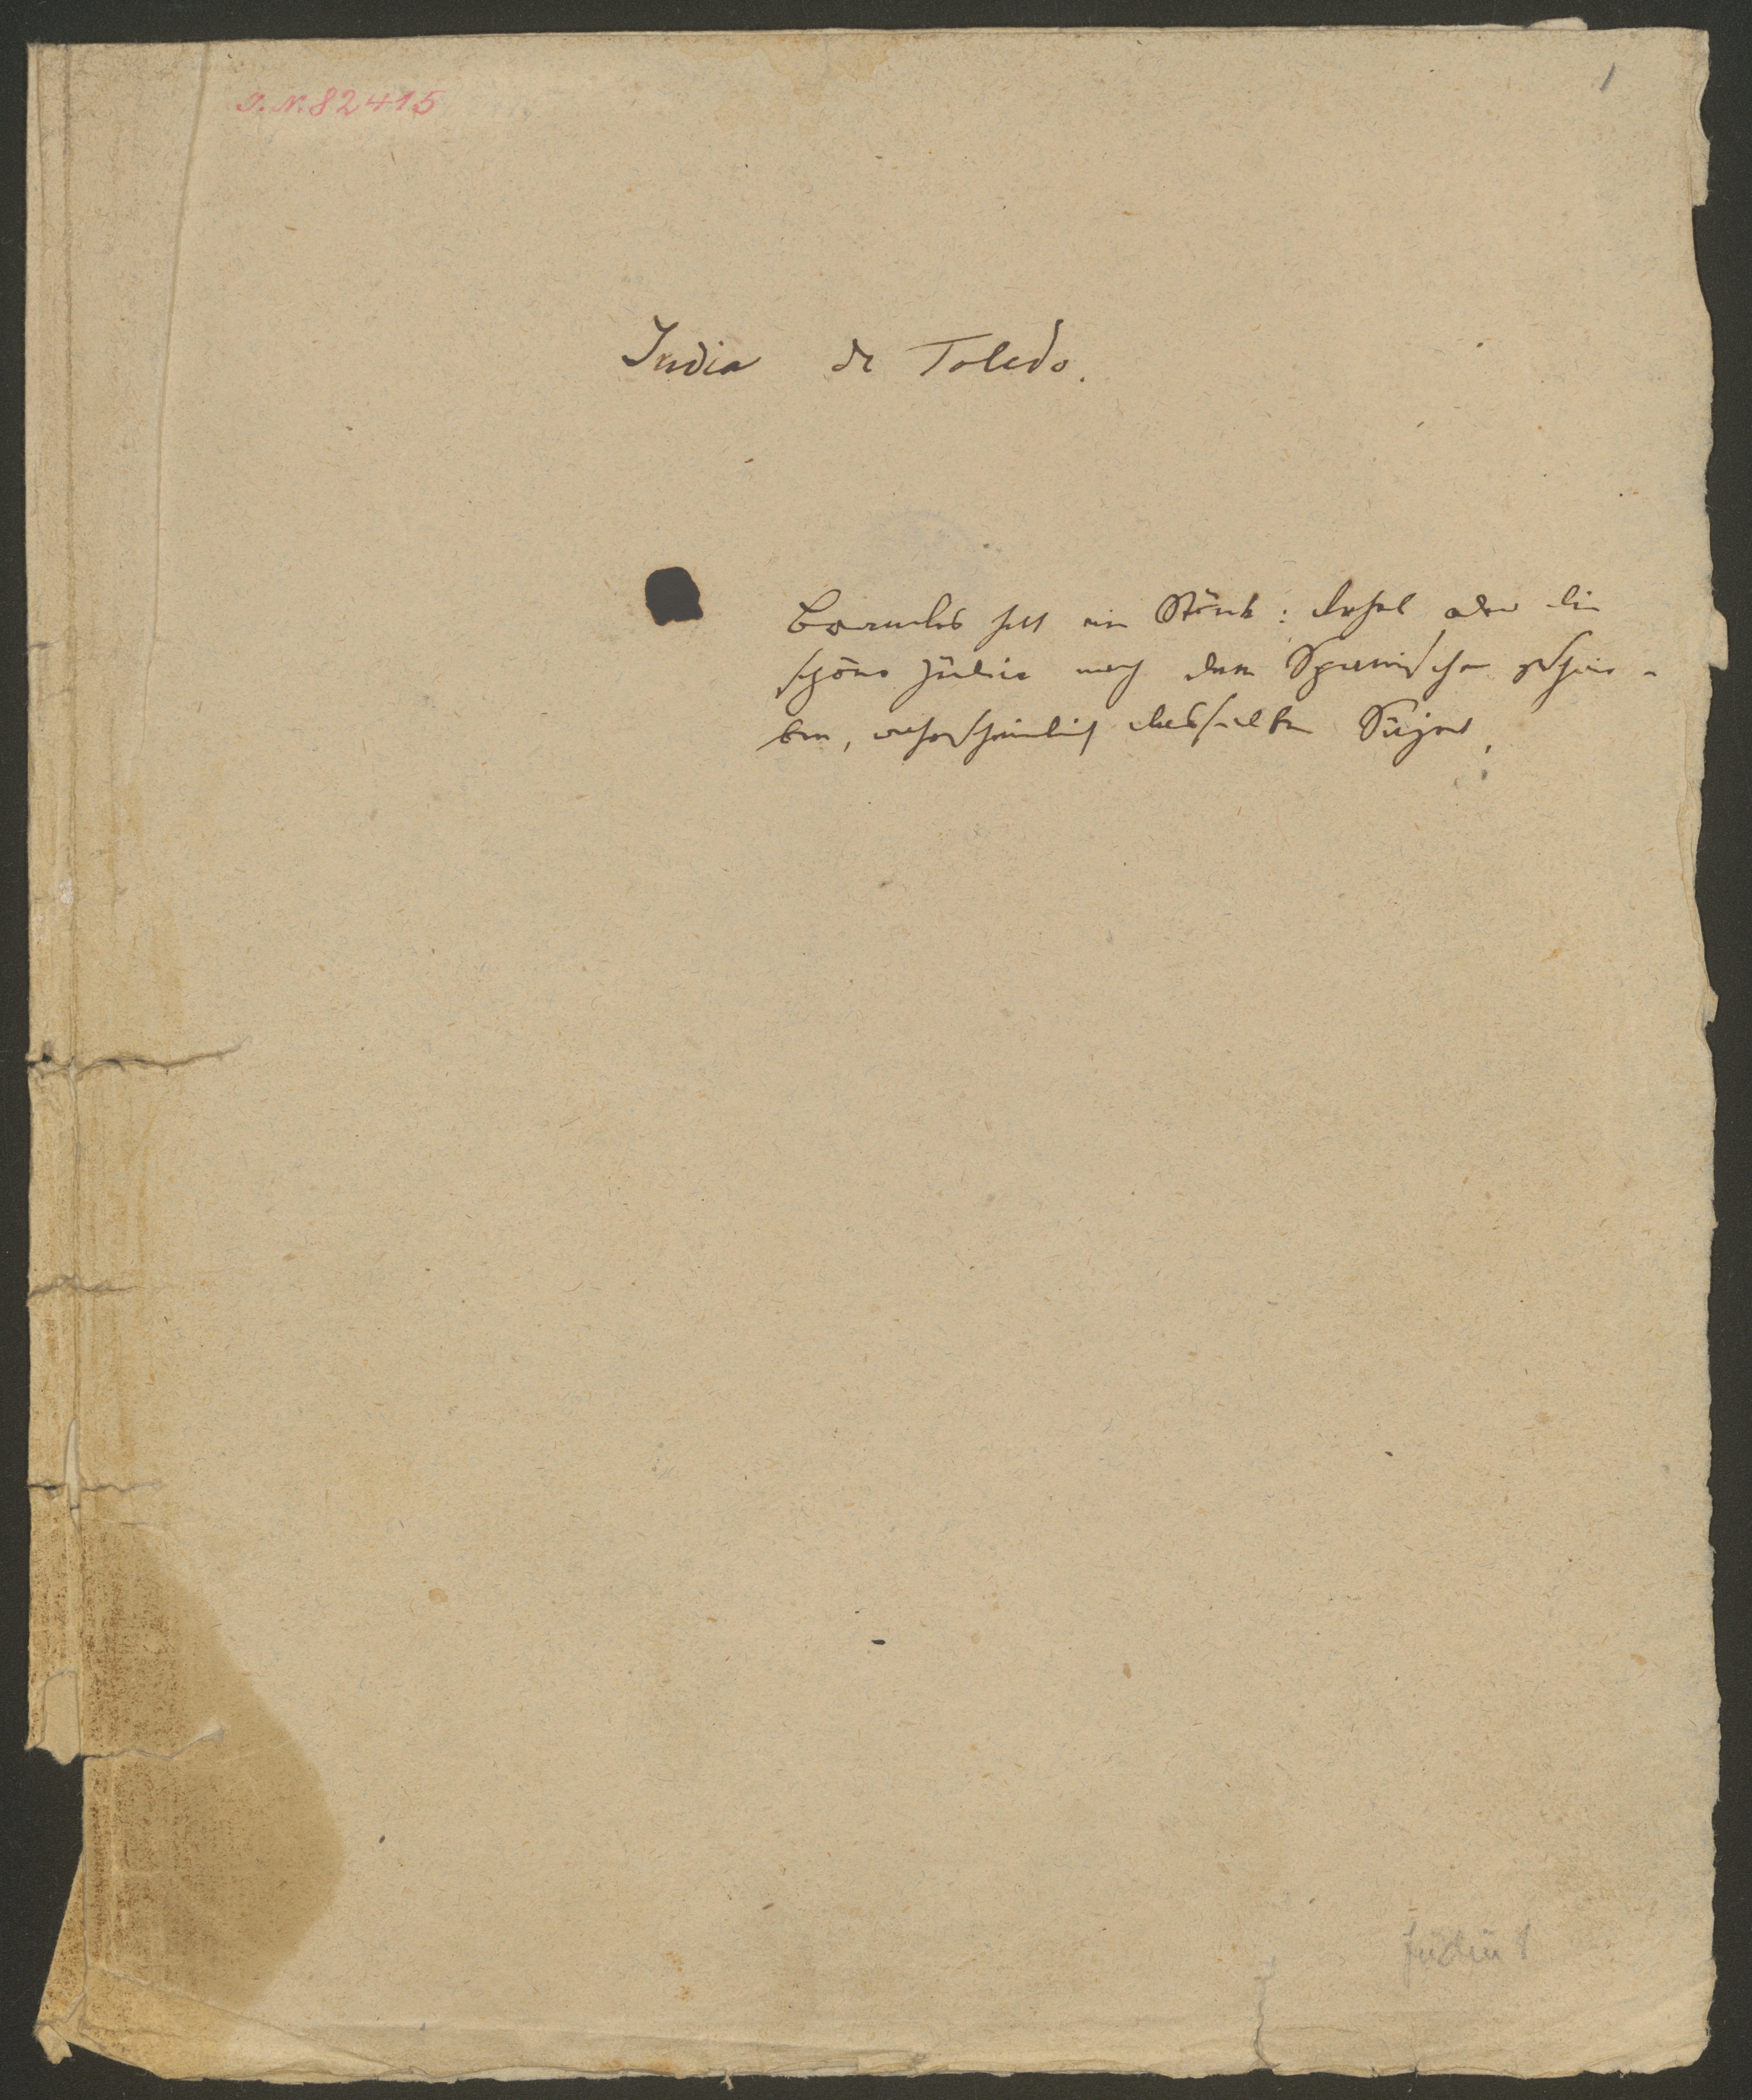 J. N. 82415
1
Judia de Toledo.
hat ein Stück: Rahel oder die
schöne Jüdin nach dem Spanischen geschrie-
ben, wahrscheinlich dasselbe Süjet.
Jüdin 1